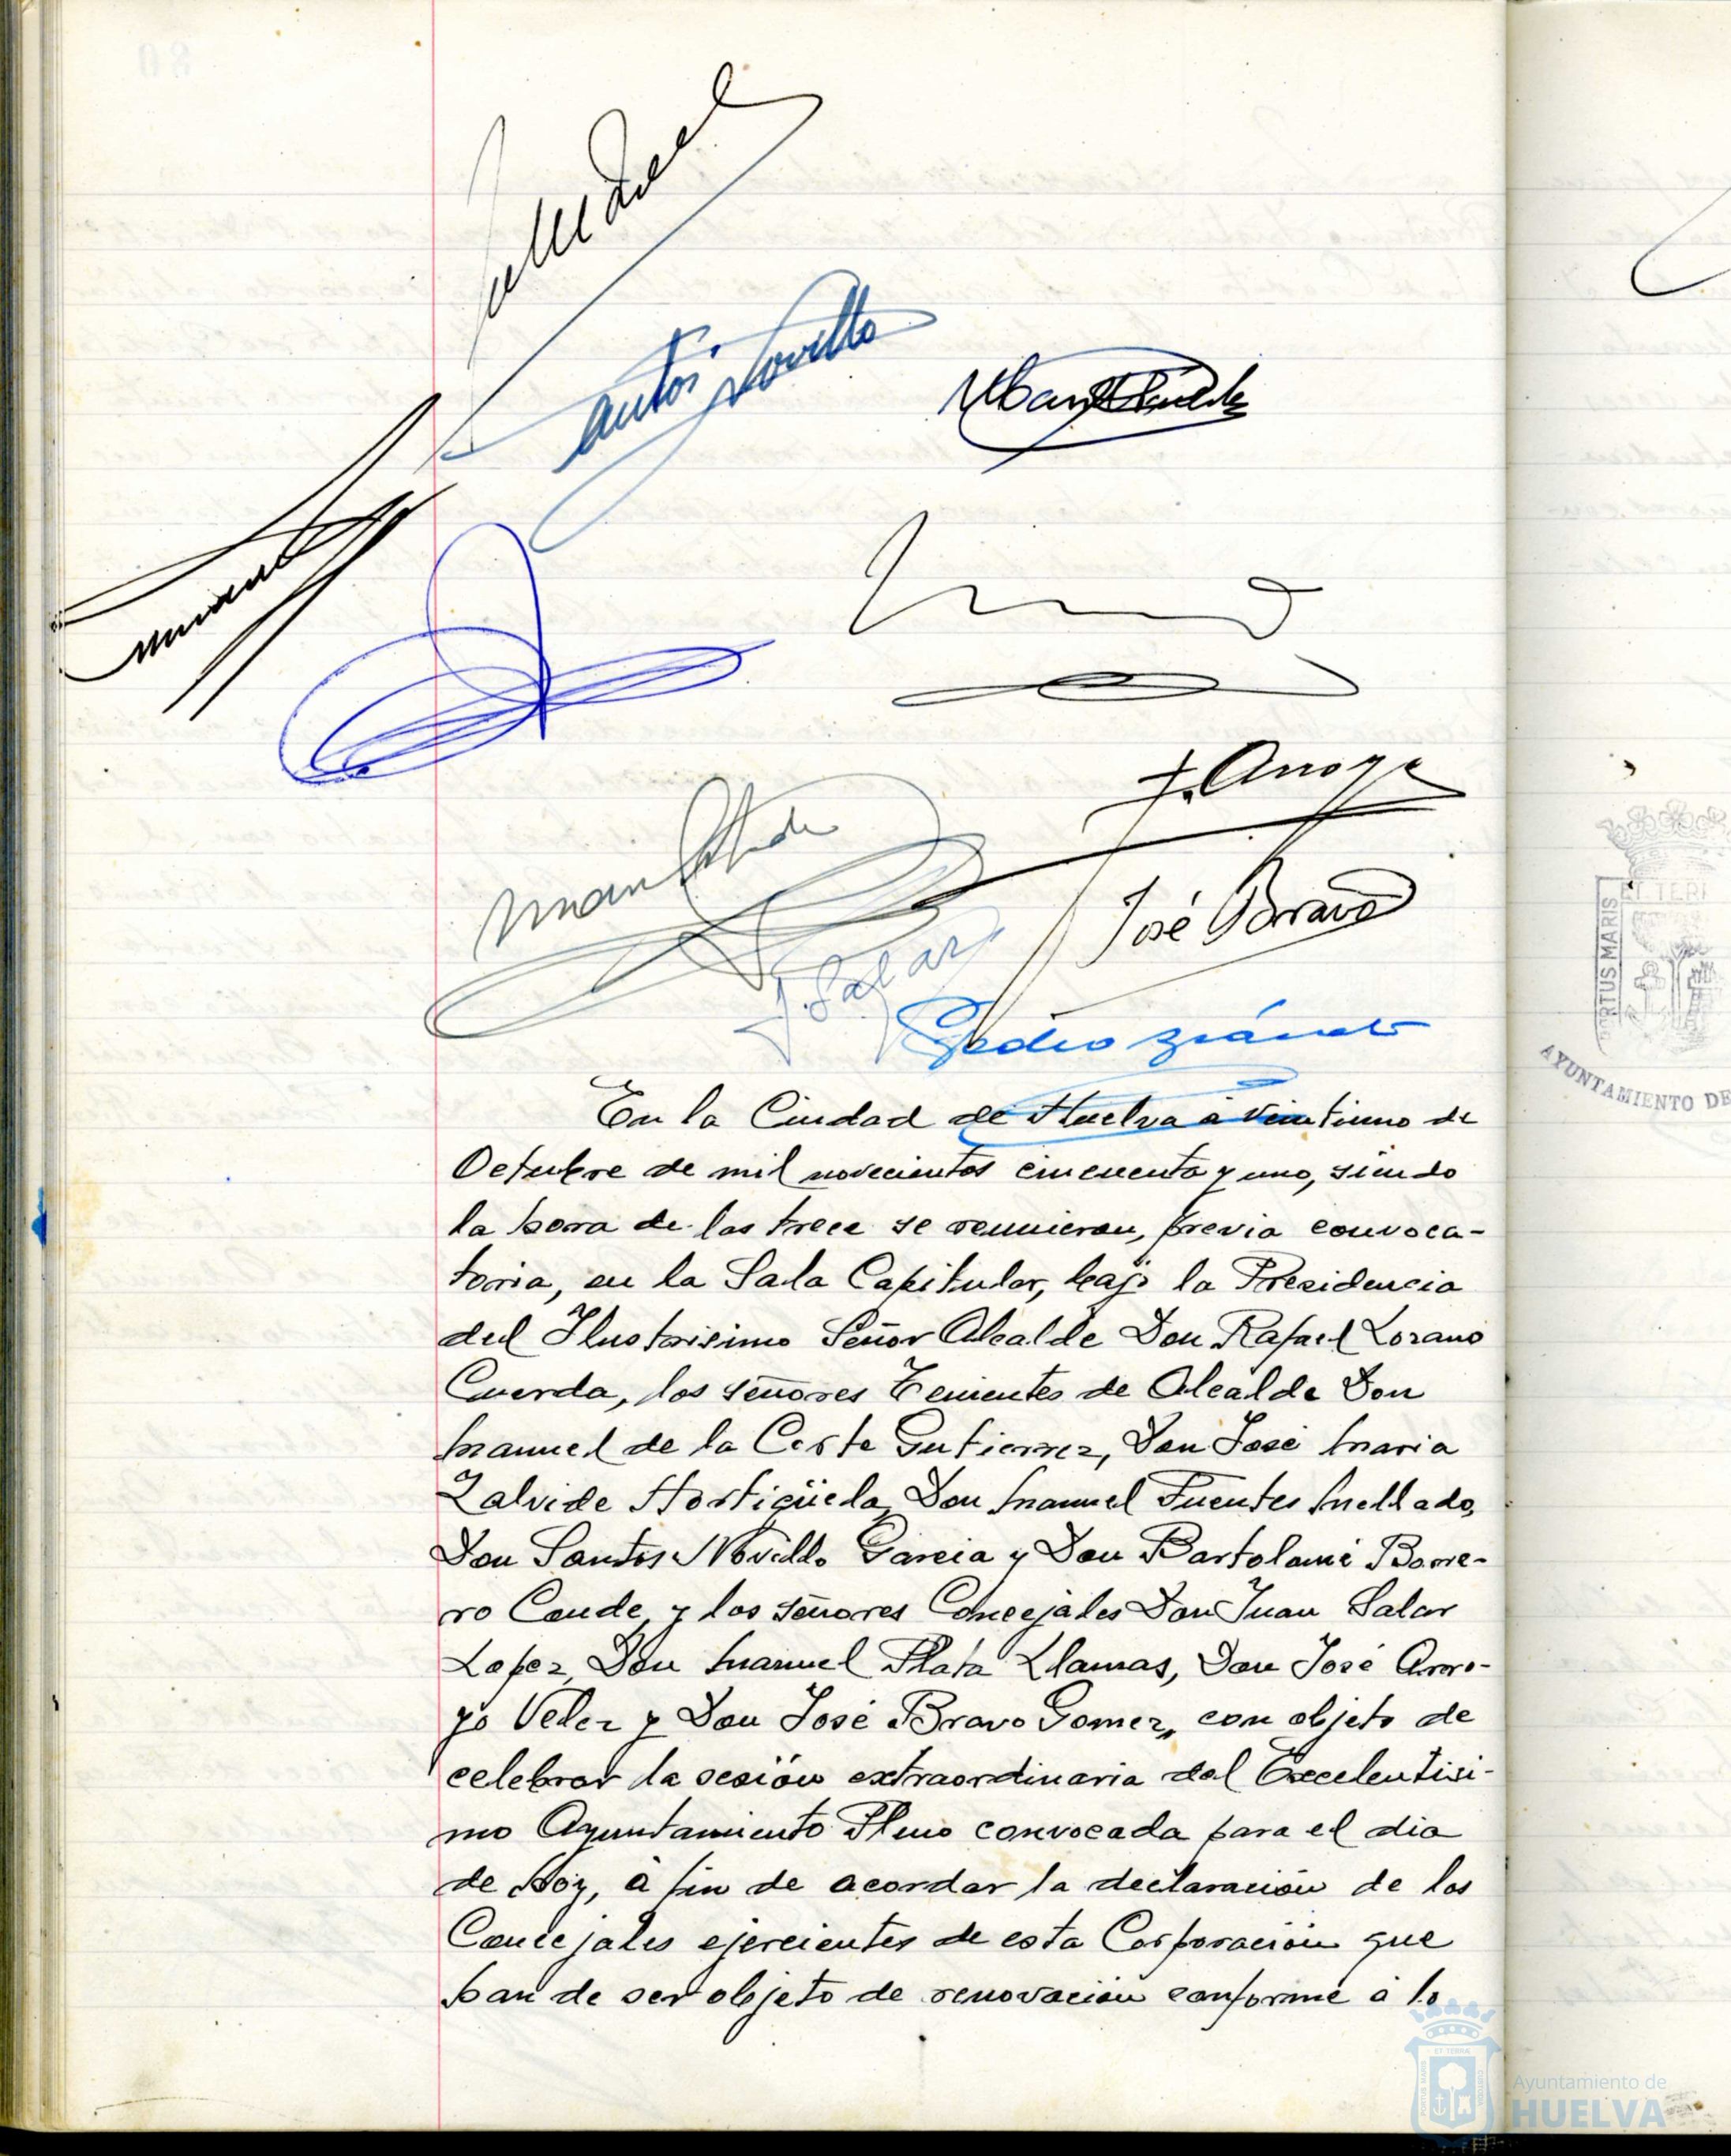 Santos Novillo
F. Arroyo
José Bravo
J. Salar
Pedro
En la Ciudad de Huelva a veintiuno de
Octubre de mil novecientos cincuenta y uno, siendo
la hora de las trece se reunieron, previa convoca-
toria, en la Sala Capitular, bajo la Presidencia
del Ilustrisimo Señor Alcalde Don Rafael Lozano
Cuerda, los señores Tenientes de Alcalde Don
Manuel de la Corte Gutierrez, Don José Maria
Zalvide Hortigüela, Don Manuel Fuentes Mellado,
Don Santos Novillo Garcia y Don Bartolomé Borre-
ro Conde, y los señores Concejales Don Juan Salar
Lopez, Don Manuel Plata Llamas, Don José Arro-
yo Velez y Don José Bravo Gomez, con objeto de
celebrar la sesión extraordinaria del Excelentisi-
mo Ayuntamiento Pleno convocada para el dia
de hoy, a fin de acordar la declaración de los
Concejales ejercientes de esta Corporación que
han de ser objeto de renovación conforme a lo
PORTUS MARIS ET TERR
AYUNTAMIENTO DE
Ayuntamiento de
HUELVA